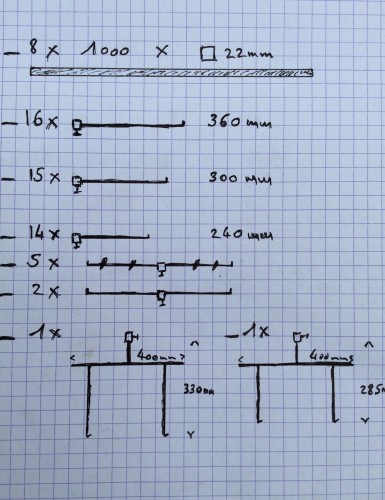 - 8 x 1000 x □ 22mm
- 16 x 360 mm
- 15 x 300 mm
- 14 x 240 mm
- 5 x
- 2 x
- 1x - 1x
400mm 400mm
330mm 285